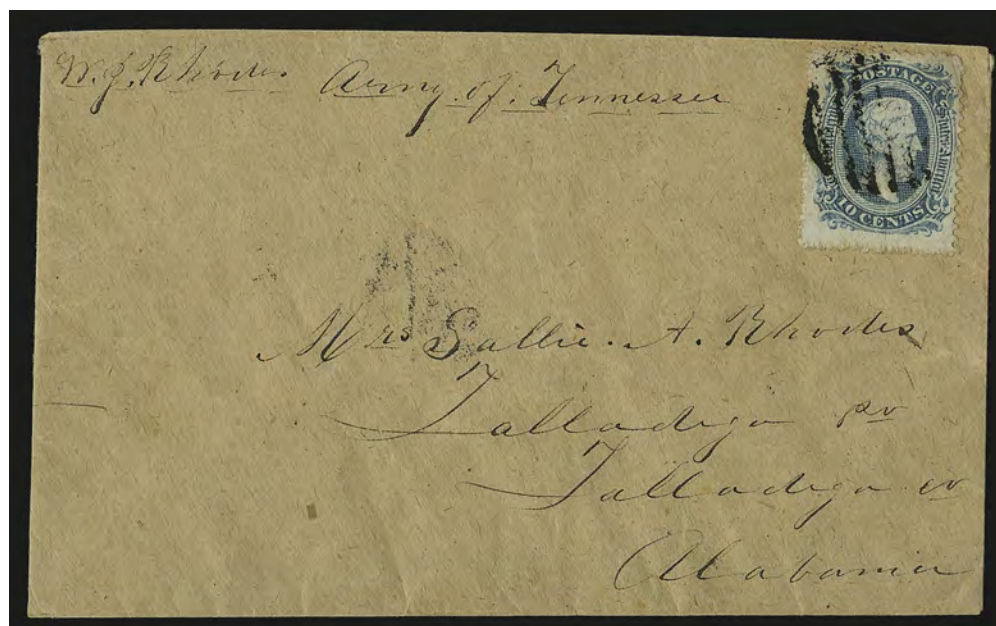 W. J. Rhodes Army of Tennessee
POSTAGE
States of America
10 CENTS
Mrs Sallie. A. Rhodes
Talladega po
Talladega co
Alabama